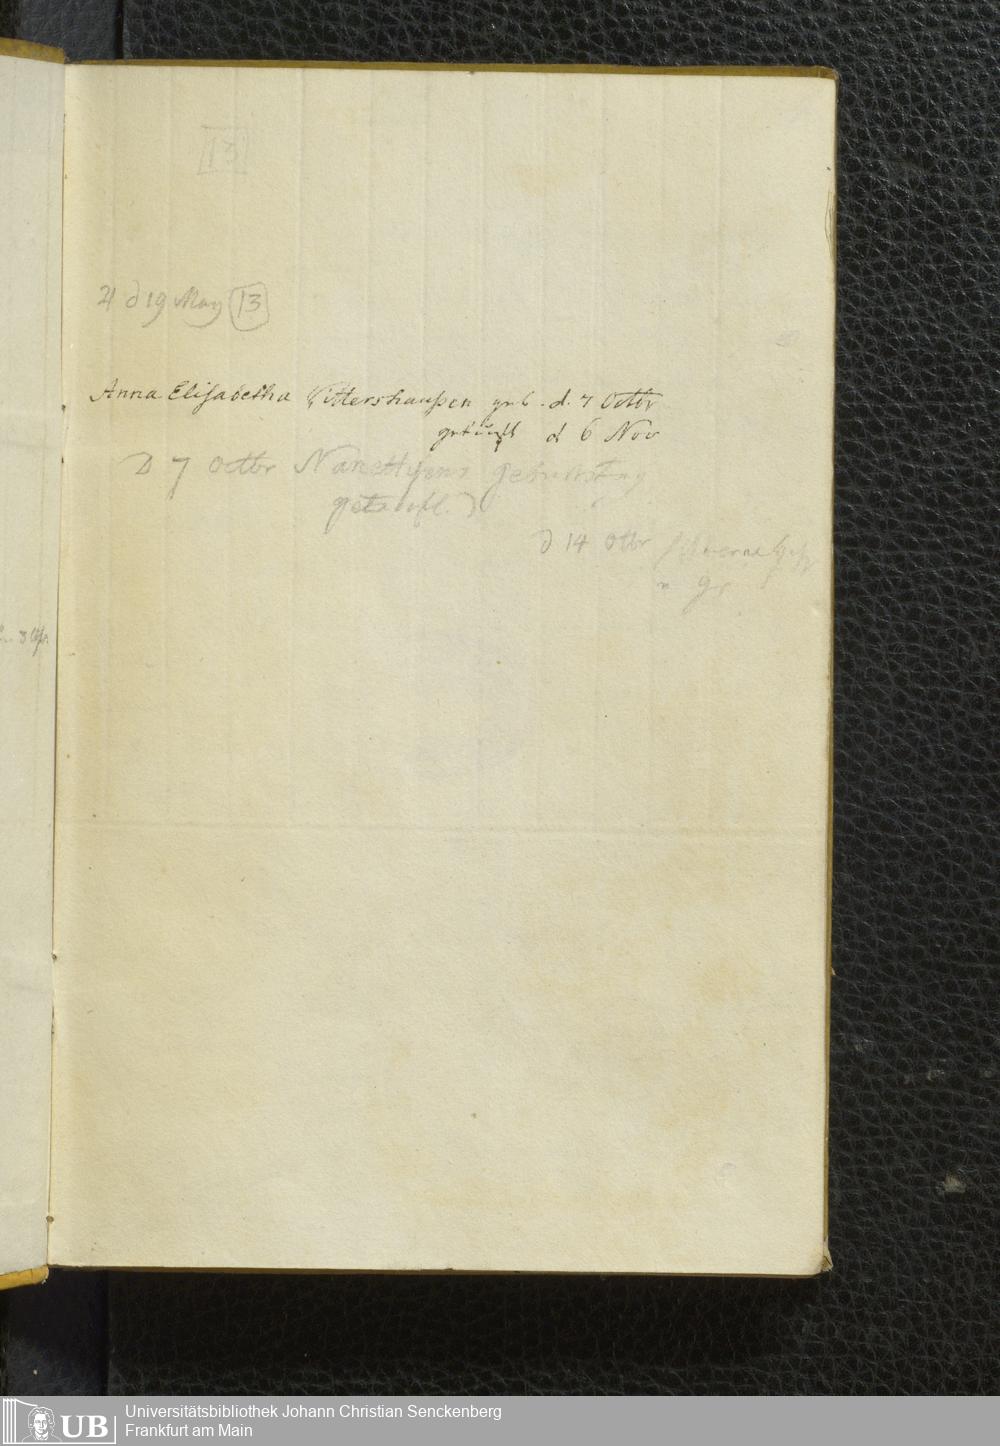 13
♃ d 19 May 13
Anna Elisabetha Rittershaußen geb. d. 7 Octbr
getauft d 6 Nov
D 7 Octbr Nanettgens Geburtstag
getauft.
d 14 Otbr
3 Apr.
UB
Universitätsbibliothek Johann Christian Senckenberg
Frankfurt am Main